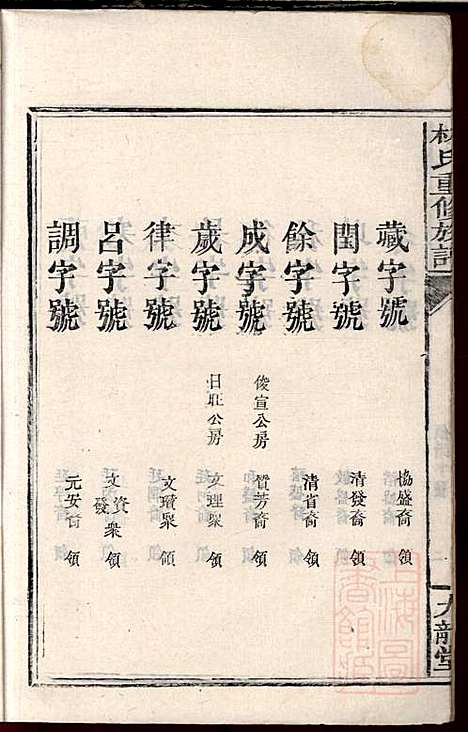 林氏重修族譜
九龍堂
藏字號 協盛裔 領
閏字號 清發裔 領
餘字號 清省裔 領
成字號 俊宣公房 贊芳裔 領
歲字號 日旺公房 文理衆 領
律字號 文瓚衆 領
呂字號 文資發衆 領
調字號 元安裔 領
上海圖書館藏